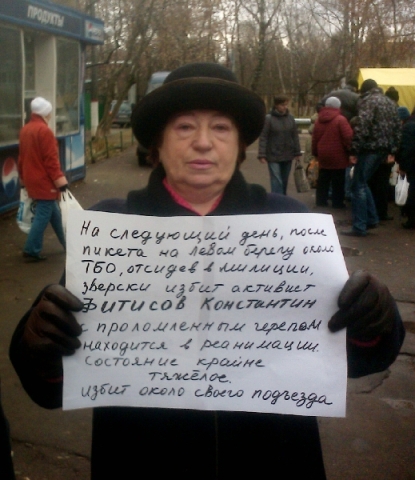 ПРОДУКТЫ
pepsi
На следующий день, после
пикета на левом берегу около
ТБО, отсидев в милиции,
зверски избит активист
Фитисов Константин
с проломленным черепом
находится в реанимации.
Состояние крайне
тяжёлое.
избит около своего подъезда